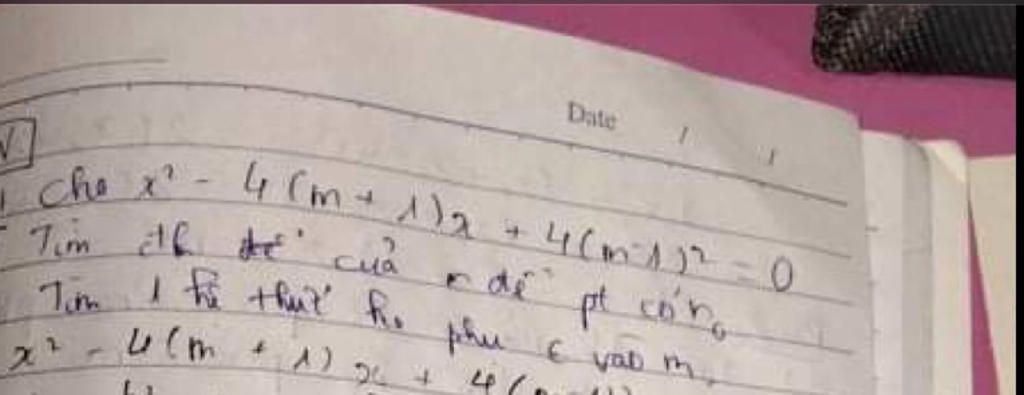 Date / /
V
1 Cho x² - 4(m + 1)x + 4(m-1)² = 0
Tìm đk của m để pt có n₀
Tìm 1 hệ thức ko phụ ∈ vào m.
x² - 4(m + 1)x + 4(